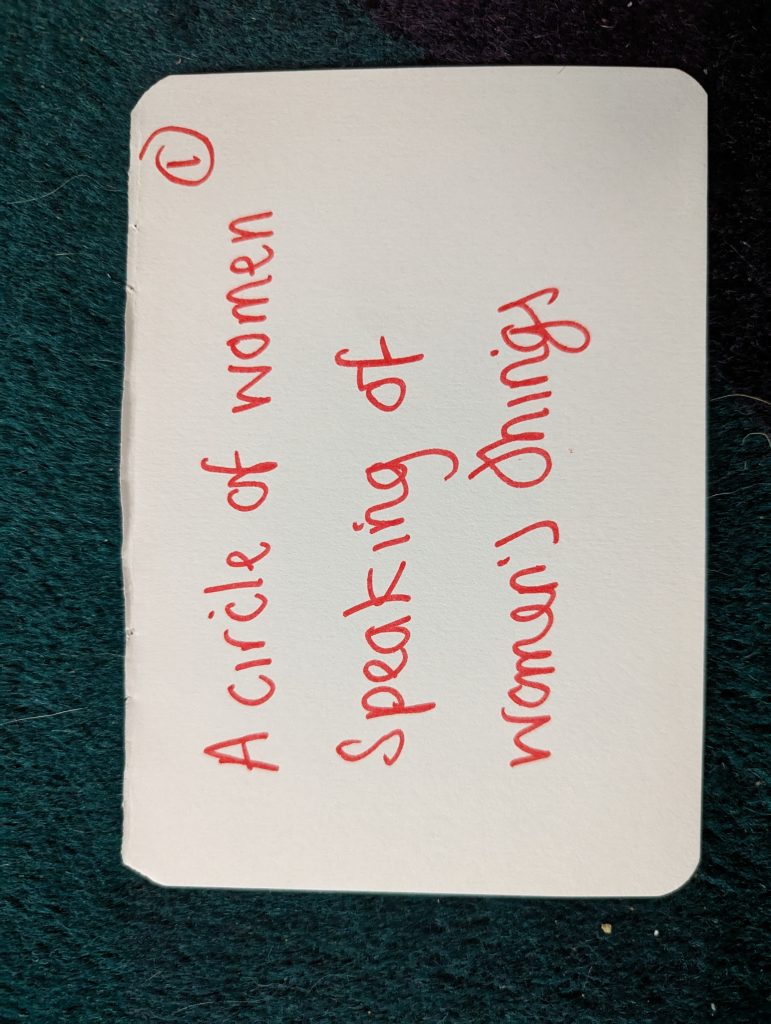 ①
A circle of women
Speaking of
women's things